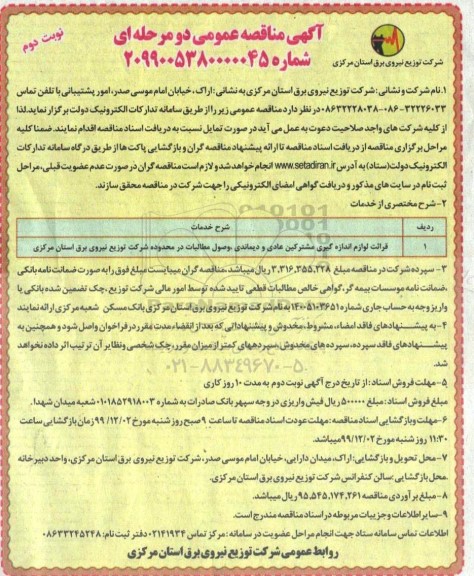 نوبت دوم
آگهی مناقصه عمومی دو مرحله ای
شماره ۲۰۹۹۰۰۵۳۸۰۰۰۰۰۴۵
شرکت توزیع نیروی برق استان مرکزی
۱.نام شرکت و نشانی :شرکت توزیع نیروی برق استان مرکزی به نشانی : اراک ، خیابان امام موسی صدر، امور پشتیبانی با تلفن تماس
۰۸۶-۳۲۲۲۶۰۳۳-۰۸۶۳۲۲۲۸۰۳۸ در نظر دارد مناقصه عمومی زیر را از طریق سامانه تدارکات الکترونیک دولت برگزار نماید.لذا
از کلیه شرکت های واجد صلاحیت دعوت به عمل می آید در صورت تمایل نسبت به دریافت اسناد مناقصه اقدام نمایند. ضمنا کلیه
مراحل برگزاری مناقصه از دریافت اسناد مناقصه تا ارائه پیشنهاد مناقصه گران و بازگشایی پاکت ها از طریق درگاه سامانه تدارکات
الکترونیک دولت(ستاد) به آدرس www.setadiran.ir انجام خواهد شد و لازم است مناقصه گران در صورت عدم عضویت قبلی، مراحل
ثبت نام در سایت های مذکور و دریافت گواهی امضای الکترونیکی را جهت شرکت در مناقصه محقق سازند.
۲- شرح مختصری از خدمات
ردیف شرح خدمات
۱ قرائت لوازم اندازه گیری مشترکین عادی و دیماندی ،وصول مطالبات در محدوده شرکت توزیع نیروی برق استان مرکزی
۳- سپرده شرکت در مناقصه مبلغ ۳.۳۱۶.۳۵۵.۲۲۸ ریال میباشد.مناقصه گران میبایست مبلغ فوق را به صورت ضمانت نامه بانکی
،ضمانت نامه موسسات بیمه گر،گواهی خالص مطالبات قطعی تایید شده توسط امور مالی شرکت توزیع، چک تضمین شده بانکی یا
واریز وجه به حساب جاری شماره ۱۴۰۰۵۱۰۳۶۵۱ به نام شرکت توزیع نیروی برق استان مرکزی بانک مسکن شعبه مرکزی ارائه نمایند
۴- به پیشنهادهای فاقد امضاء، مشروط، مخدوش و پیشنهاداتی که بعد از انقضاء مدت مقرر در فراخوان واصل شود و همچنین به
پیشنهادهای فاقد سپرده، سپرده های مخدوش، سپردههای کمتر از میزان مقرر، چک شخصی و نظایر آن ترتیب اثر داده نخواهد
شد.
۰۲۱-۸۸۳۴۹۶۷۰-۵
۵- مهلت فروش اسناد : از تاریخ درج آگهی نوبت دوم به مدت ۱۰ روز کاری
مبلغ فروش اسناد : مبلغ ۵۰۰۰۰۰ ریال فیش واریزی در وجه سپهر بانک صادرات به شماره ۰۱۰۱۸۵۲۹۱۸۰۰۳ شعبه میدان شهدا .
۶- مهلت وبازگشایی اسناد مناقصه : مهلت عودت اسناد مناقصه تا ساعت ۹ صبح روز شنبه مورخ ۹۹/۱۲/۰۲ زمان بازگشایی ساعت
۱۱:۳۰ روز شنبه مورخ ۹۹/۱۲/۰۲ میباشد.
۷- محل تحویل و بازگشایی: اراک، میدان دارایی، خیابان امام موسی صدر، شرکت توزیع نیروی برق استان مرکزی، واحد دبیرخانه
.محل بازگشایی :سالن کنفرانس شرکت توزیع نیروی برق استان مرکزی.
۸- مبلغ برآوردی مناقصه ۹۵.۵۴۵.۱۷۴.۲۶۱ ریال میباشد.
۹-سایر اطلاعات و جزییات مربوطه در اسناد مناقصه مندرج است.
اطلاعات تماس سامانه ستاد جهت انجام مراحل عضویت در سامانه : مرکز تماس ۰۲۱۴۱۹۳۴ دفتر ثبت نام: ۰۸۶۳۳۲۴۵۲۴۸
روابط عمومی شرکت توزیع نیروی برق استان مرکزی